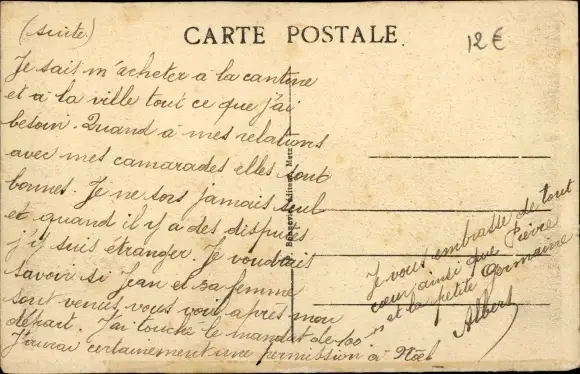 (suite)
CARTE POSTALE
12€
Je sais m'acheter à la cantine
et à la ville tout ce que j'ai
besoin. Quand à mes relations
avec mes camarades elles sont
bonnes. Je ne sors jamais seul
et quand il y a des disputes
j'y suis étranger. Je voudrais
savoir si Jean et sa femme
sont venus vous voir après mon
départ. J'ai touché le mandat de 100 frs
J'aurai certainement une permission à Noël
Je vous embrasse de tout
cœur ainsi que Pierre
et la petite Germaine
Albert
éditeur, Metz